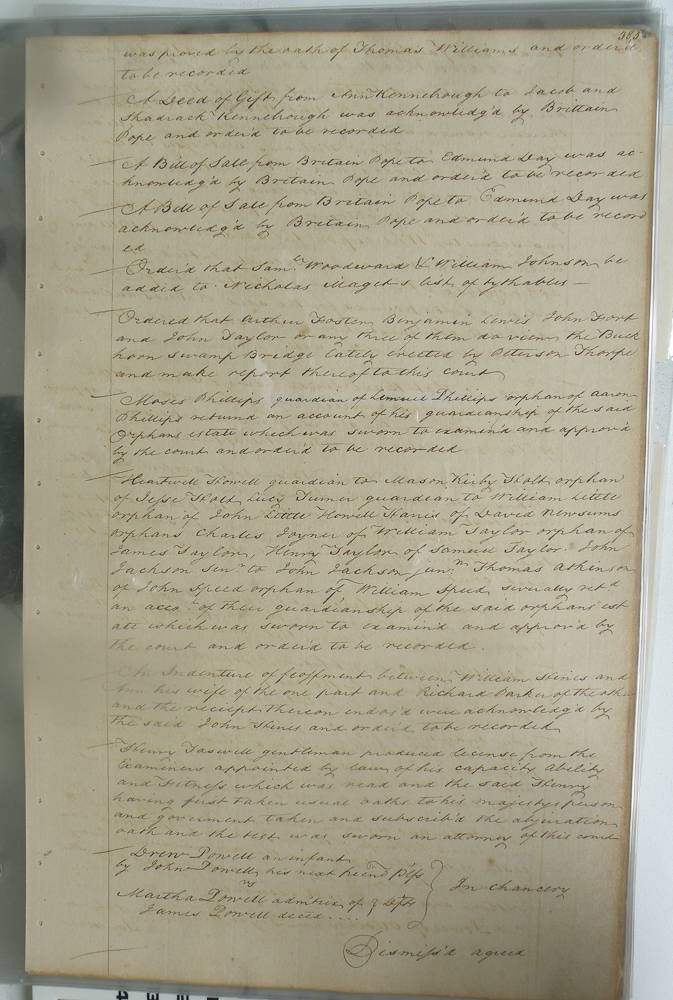 385
was proved by the oath of Thomas Williams and order'd
to be recorded
A Deed of Gift from Ann Kennebrough to Jacob and
Shadrack Kennebrough was acknowledg'd by Brittain
Pope and order'd to be recorded
A Bill of Sale from Britain Pope to Edmund Day was ac-
knowledg'd by Britain Pope and order'd to be recorded
A Bill of Sale from Britain Pope to Edmund Day was
acknowledg'd by Britain Pope and order'd to be record
ed
Order'd that Saml Woodward & William Johnson be
added to Nicholas Magets list of tythables —
Ordered that Arthur Foster Benjamin Lewis John Fort
and John Taylor or any three of them do view the Buck
horn Swamp Bridge lately erected by Peterson Thorpe
and make report thereof to this court
Moses Phillips guardian of Lemuel Phillips orphan of Aaron
Phillips returnd an account of his guardianship of the said
Orphans estate which was sworn to examin'd and approv'd
by the court and order'd to be recorded
Heartwell Howell guardian to Mason Kirby Holt orphan
of Jesse Holt Lucy Turner guardian to William Little
orphan of John Little Howell Harris of David Newsums
orphans Charles Joyner of William Taylor orphan of
James Taylor, Henry Taylor of Samuel Taylor John
Jackson Senr to John Jackson junr Thomas Atkinson
of John Speed orphan of William Speed, severally retd
an accot of their guardianship of the said orphans est
ate which was sworn to examin'd and approv'd by
the court and order'd to be recorded.
An Indenture of feoffment between William Hines and
Ann his wife of the one part and Richard Parker of the other
and the reciept thereon endors'd were acknowledg'd by
the said John Hines and order'd to be recorded
Henry Taswell gentleman produced license from the
Examiners appointed by law of his capacity ability
and Fitness which was read and the said Henry
having first taken usual oaths to his majestys person
and goverment taken and subscrib'd the abjuration
oath and the test was sworn an attorney of this court
Drew Powell an infant
by John Powell his next friend Plff
vs
In chancery
Martha Powell admitrix of Deft
James Powell deced....
Dismiss'd agreed